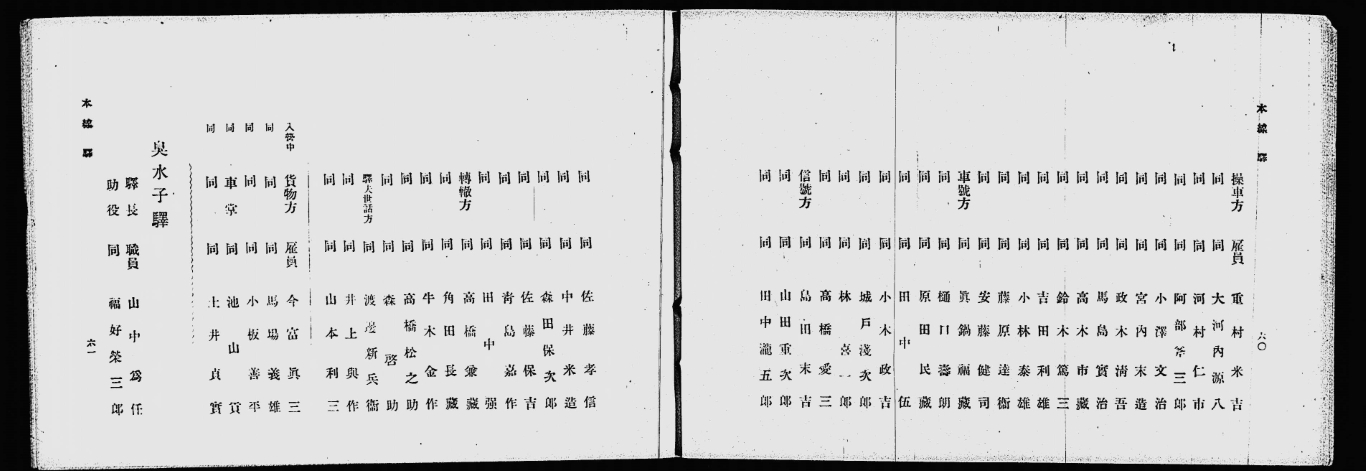 本線驛
六〇
操車方 雇員 重村米吉
同 同 大河內源八
同 同 河村仁市
同 同 阿部 三郎
同 同 小澤文治
同 同 宮內末造
同 同 政木淸吾
同 同 馬島實治
同 同 高木市藏
同 同 鈴木篤三
同 同 吉田利雄
同 同 小林泰雄
同 同 藤原達衞
同 同 安藤健司
車號方 同 眞鍋福藏
同 同 樋口壽朗
同 同 原田民藏
同 同 田中伍
同 同 小木政吉
同 同 城戶淺次郎
同 同 林喜一郎
同 同 高橋愛三
信號方 同 島田末吉
同 同 山田重次郎
同 同 田中瀧五郎
同 同 佐藤孝信
同 同 中井米造
同 同 森田保次郎
同 同 佐藤保吉
同 同 靑島嘉作
同 同 田中强
轉轍方 同 高橋兼藏
同 同 角田長藏
同 同 牛木金作
同 同 高橋松之助
同 同 森啓助
驛夫世話方 同 渡邊新兵衞
同 同 井上與作
同 同 山本利三
入營中 貨物方 雇員 今富眞三
同 同 同 馬場義雄
同 同 同 小板善平
同 車掌 同 池山貢
同 同 同 土井貞實
臭水子驛
驛長 職員 山中爲任
助役 同 福好榮三郎
本線驛
六一